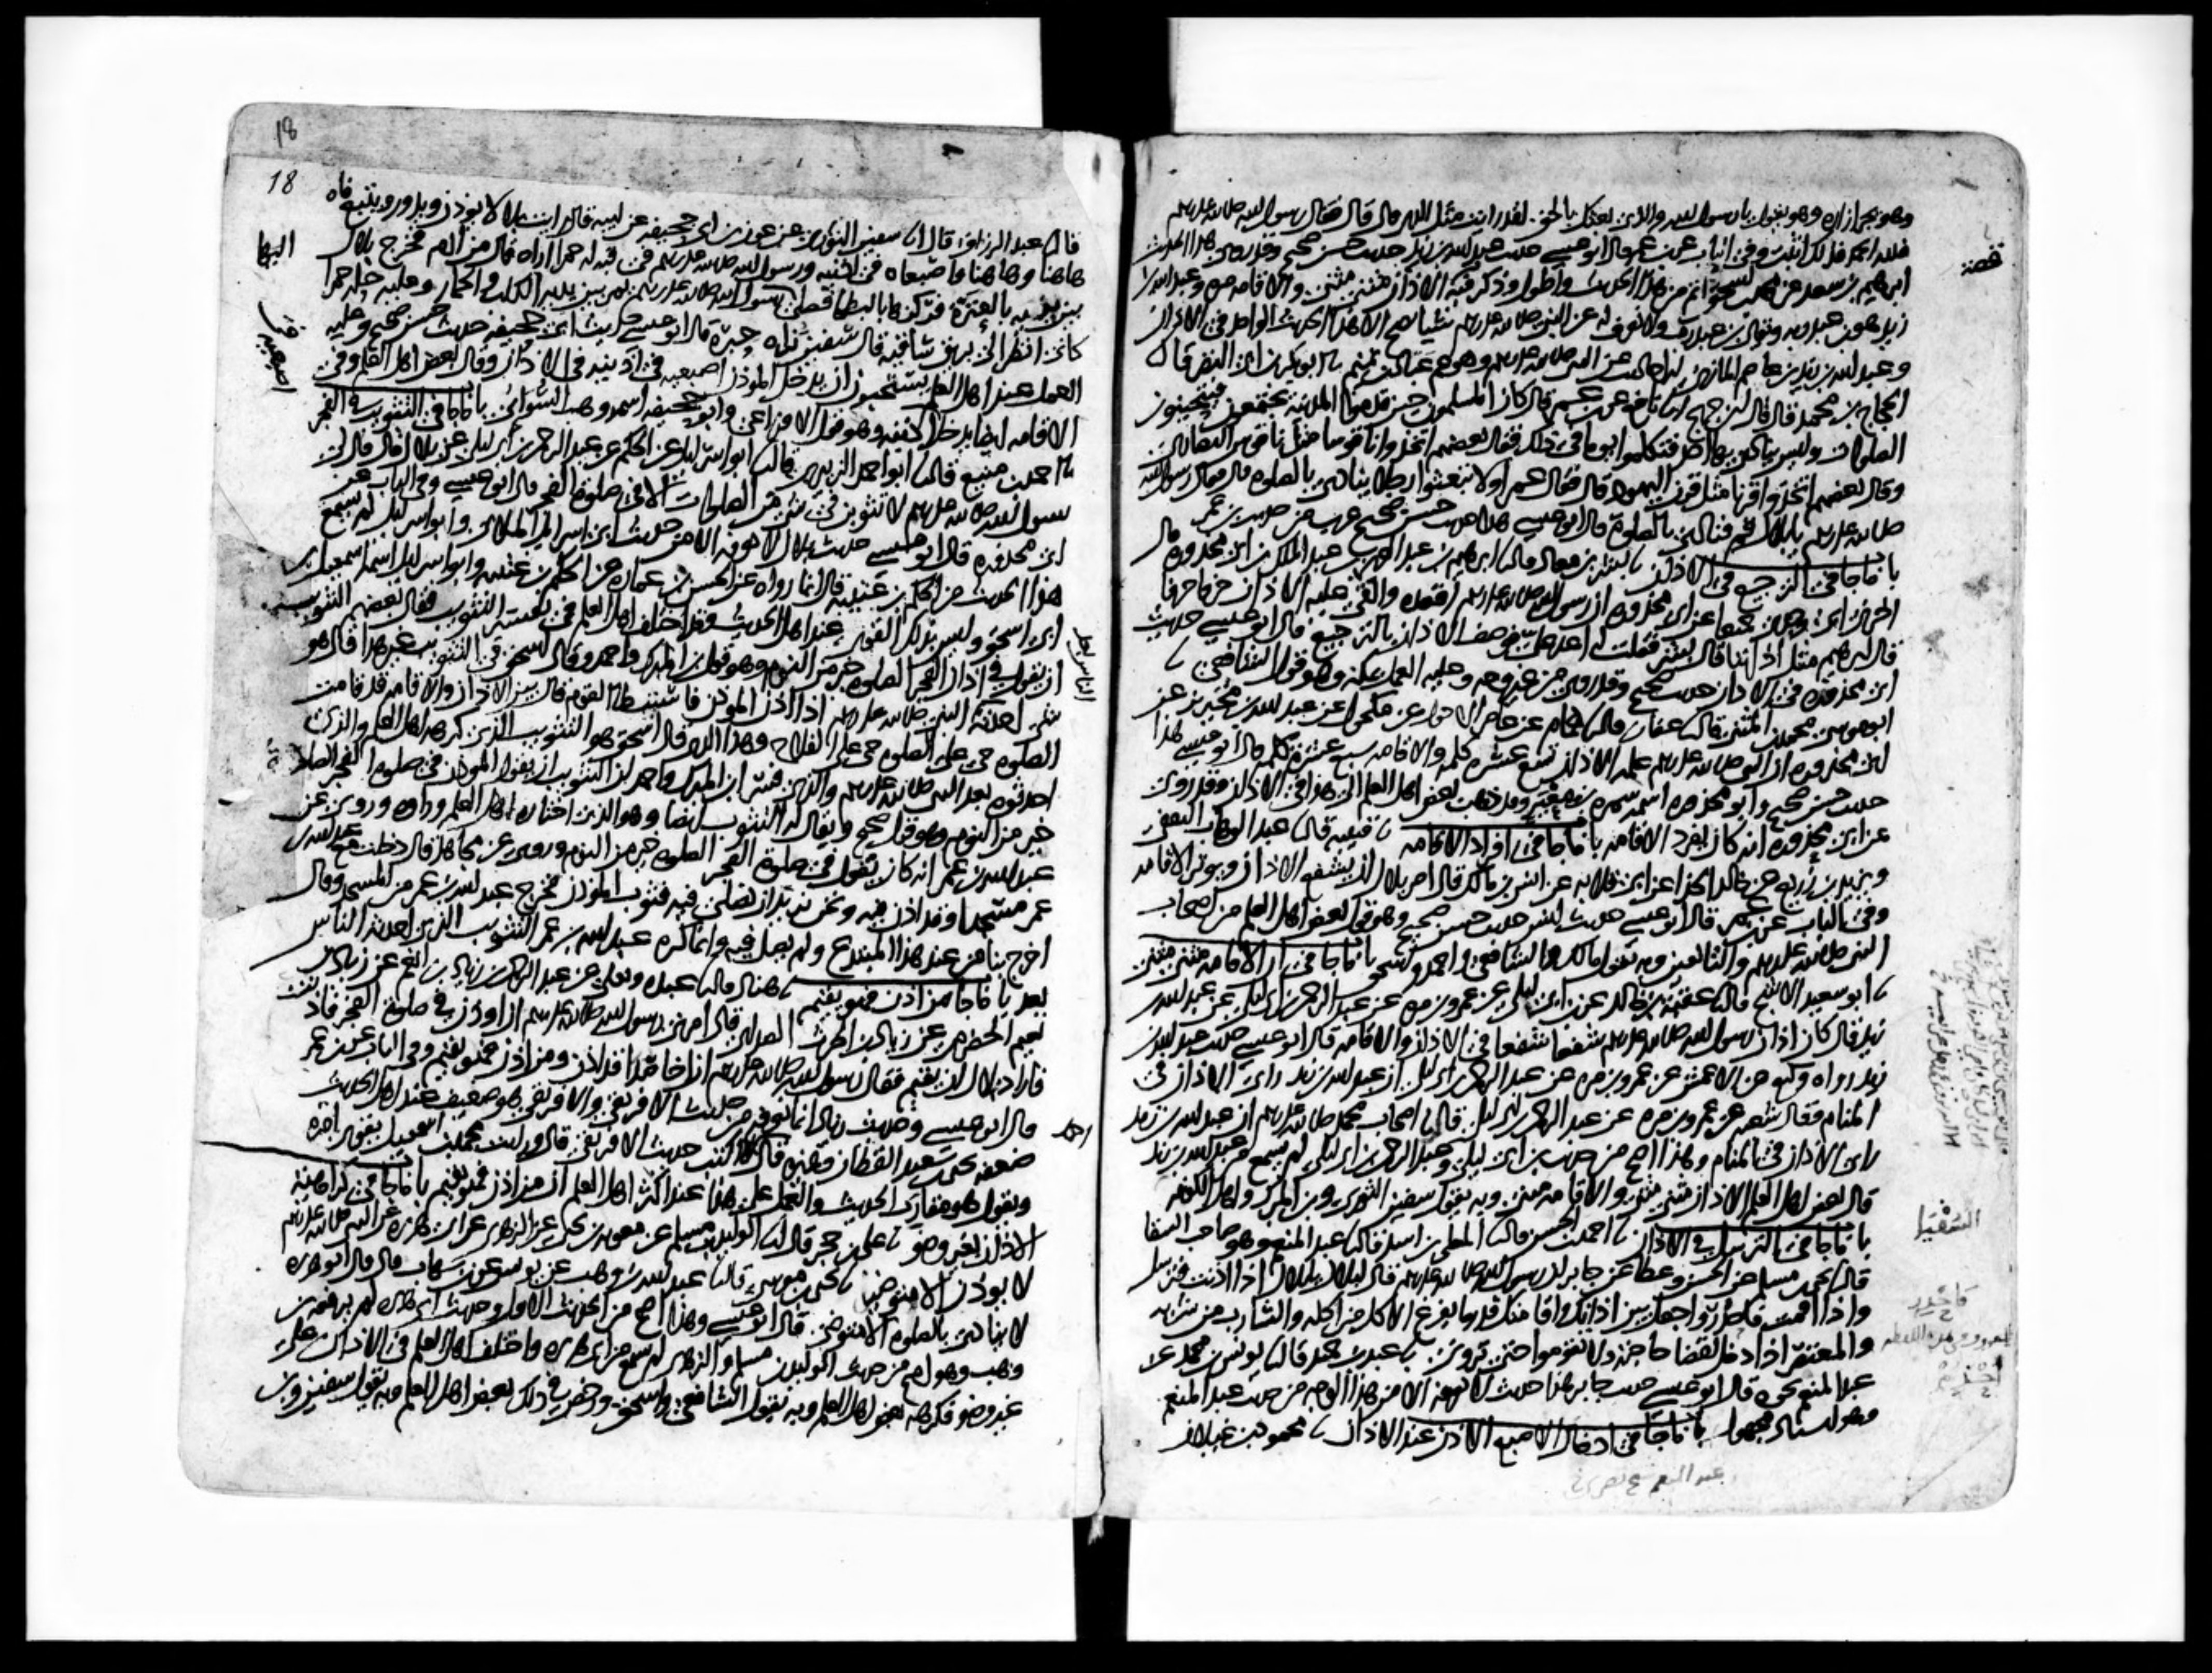 وهو يجر ازاره وهو يقول يا رسول الله والذي بعثك بالحق لقد رايت مثل الذي قال قال فقال رسول الله صلى الله عليه وسلم
فلله الحمد فذلك اثبت وفي الباب عن ابن عمر قال ابو عيسى حديث عبد الله بن زيد حديث حسن صحيح وقد روى هذا الحديث
ابرهيم بن سعد عن محمد بن اسحق اتم من هذا الحديث واطول وذكر فيه قصة الاذان مثنى مثنى والاقامة مرة وعبد الله بن
زيد هو ابن عبد ربه ويقال ابن عبد رب ولا نعرف له عن النبي صلى الله عليه وسلم شيئا يصح الا هذا الحديث الواحد في الاذان
وعبد الله بن زيد بن عاصم المازني له احاديث عن النبي صلى الله عليه وسلم وهو عم عباد بن تميم ثنا ابو بكر بن ابي النضر قال ثنا
الحجاج بن محمد قال قال ابن جريج انا نافع عن ابن عمر قال كان المسلمون حين قدموا المدينة يجتمعون فيتحينون
الصلوات وليس ينادي بها احد فتكلموا يوما في ذلك فقال بعضهم اتخذوا ناقوسا مثل ناقوس النصارى
وقال بعضهم اتخذوا قرنا مثل قرن اليهود قال فقال عمر اولا تبعثون رجلا ينادي بالصلوة قال فقال رسول الله
صلى الله عليه وسلم يا بلال قم فناد بالصلوة قال ابو عيسى هذا حديث حسن صحيح غريب من حديث ابن عمر
باب ما جا في الترجيع في الاذان ثنا بشر بن معاذ قال ثنا ابرهيم بن عبد العزيز بن عبد الملك بن ابي محذورة قال
اخبرني ابي وجدي جميعا عن ابي محذورة ان رسول الله صلى الله عليه وسلم اقعده والقى عليه الاذان حرفا حرفا
قال ابرهيم مثل اذاننا قال بشر فقلت له اعد علي فوصف الاذان بالترجيع قال ابو عيسى حديث
ابي محذورة في الاذان حديث صحيح وقد روي من غير وجه وعليه العمل بمكة وهو قول الشافعي ثنا
ابو موسى محمد بن المثنى قال ثنا عفان قال ثنا همام عن عامر الاحول عن مكحول عن عبد الله بن محيريز عن
ابي محذورة ان النبي صلى الله عليه وسلم علمه الاذان تسع عشرة كلمة والاقامة سبع عشرة كلمة قال ابو عيسى هذا
حديث حسن صحيح وابو محذورة اسمه سمرة بن معير وقد ذهب بعض اهل العلم الى هذا في الاذان وقد روي
عن ابي محذورة انه كان يفرد الاقامة باب ما جا في افراد الاقامة ثنا قتيبة قال ثنا عبد الوهاب الثقفي
ويزيد بن زريع عن خالد الحذا عن ابي قلابة عن انس بن مالك قال امر بلال ان يشفع الاذان ويوتر الاقامة
وفي الباب عن ابن عمر قال ابو عيسى حديث انس حديث حسن صحيح وهو قول بعض اهل العلم من اصحاب
النبي صلى الله عليه وسلم والتابعين وبه يقول مالك والشافعي واحمد واسحق باب ما جا في ان الاقامة مثنى مثنى
ثنا ابو سعيد الاشج قال ثنا عقبة بن خالد عن ابن ابي ليلى عن عمرو بن مرة عن عبد الرحمن بن ابي ليلى عن عبد الله بن
زيد قال كان اذان رسول الله صلى الله عليه وسلم شفعا شفعا في الاذان والاقامة قال ابو عيسى حديث عبد الله بن
زيد رواه وكيع عن الاعمش عن عمرو بن مرة عن عبد الرحمن بن ابي ليلى ان عبد الله بن زيد راى الاذان في
المنام وقال شعبة عن عمرو بن مرة عن عبد الرحمن بن ابي ليلى قال ثنا اصحاب محمد صلى الله عليه وسلم ان عبد الله بن زيد
راى الاذان في المنام وهذا اصح من حديث ابن ابي ليلى وعبد الرحمن بن ابي ليلى لم يسمع من عبد الله بن زيد
قال بعض اهل العلم الاذان مثنى مثنى والاقامة مثنى مثنى وبه يقول سفين الثوري وابن المبرك واهل الكوفة
باب ما جا في الترسل في الاذان ثنا احمد بن الحسن قال ثنا المعلى بن اسد قال ثنا عبد المنعم وهو صاحب السقا
قال ثنا يحيى بن مسلم عن الحسن وعطا عن جابر ان رسول الله صلى الله عليه وسلم قال لبلال يا بلال اذا اذنت فترسل
واذا اقمت فاحدر واجعل بين اذانك واقامتك قدر ما يفرغ الاكل من اكله والشارب من شربه
والمعتصر اذا دخل لقضا حاجته ولا تقوموا حتى تروني ثنا عبد بن حميد قال ثنا يونس بن محمد عن
عبد المنعم نحوه قال ابو عيسى حديث جابر هذا حديث لا نعرفه الا من هذا الوجه من حديث عبد المنعم
وهو اسناد مجهول باب ما جا في ادخال الاصبع الاذن عند الاذان ثنا محمود بن غيلان
قصة
السقا
18
قال ثنا عبد الرزاق قال انا سفين الثوري عن عون بن ابي جحيفة عن ابيه قال رايت بلالا يوذن ويدور ويتبع فاه
هاهنا وهاهنا واصبعاه في اذنيه ورسول الله صلى الله عليه وسلم في قبة له حمرا اراه قال من ادم فخرج بلال
بين يديه بالعنزة فركزها بالبطحا فصلى رسول الله صلى الله عليه وسلم يمر بين يديه الكلب والحمار وعليه حلة حمرا
كاني انظر الى بريق ساقيه قال سفين نراه حبرة قال ابو عيسى حديث ابي جحيفة حديث حسن صحيح وعليه
العمل عند اهل العلم يستحبون ان يدخل الموذن اصبعيه في اذنيه في الاذان وقال بعض اهل العلم وفي
الاقامة ايضا يدخل اصبعيه وهو قول الاوزاعي وابو جحيفة اسمه وهب السوائي باب ما جا في التثويب في الفجر
ثنا احمد بن منيع قال ثنا ابو احمد الزبيري قال ثنا ابو اسرائيل عن الحكم عن عبد الرحمن بن ابي ليلى عن بلال قال قال لي
رسول الله صلى الله عليه وسلم لا تثوبن في شي من الصلوات الا في صلوة الفجر قال ابو عيسى وفي الباب عن
ابي محذورة قال ابو عيسى حديث بلال لا نعرفه الا من حديث ابي اسرائيل الملائي وابو اسرائيل لم يسمع
هذا الحديث من الحكم بن عتيبة قال انما رواه عن الحسن بن عمارة عن الحكم بن عتيبة وابو اسرائيل اسمه اسمعيل بن
ابي اسحق وليس بذاك القوي عند اهل الحديث وقد اختلف اهل العلم في تفسير التثويب فقال بعضهم التثويب
ان يقول في اذان الفجر الصلوة خير من النوم وهو قول ابن المبرك واحمد وقال اسحق في التثويب غير هذا قال هو
شي احدثه الناس بعد النبي صلى الله عليه وسلم اذا اذن الموذن فاستبطا القوم قال بين الاذان والاقامة قد قامت
الصلوة حي على الصلوة حي على الفلاح وهذا الذي قال اسحق هو التثويب الذي كرهه اهل العلم والذي
احدثوه بعد النبي صلى الله عليه وسلم والذي فسر ابن المبرك واحمد ان التثويب ان يقول الموذن في صلوة الفجر الصلاة
خير من النوم وهو قول صحيح ويقال له التثويب ايضا وهو الذي اختاره اهل العلم وراوه وروي عن
عبد الله بن عمر انه كان يقول في صلوة الفجر الصلوة خير من النوم وروي عن مجاهد قال دخلت مع عبد الله بن
عمر مسجدا وقد اذن فيه ونحن نريد ان نصلي فيه فثوب الموذن فخرج عبد الله بن عمر من المسجد وقال
اخرج بنا من عند هذا المبتدع ولم يصل فيه وانما كره عبد الله بن عمر التثويب الذي احدثه الناس
بعد باب ما جا من اذن فهو يقيم ثنا هناد قال ثنا عبدة ويعلى عن عبد الرحمن بن زياد بن انعم عن زياد بن
نعيم الحضرمي عن زياد بن الحرث الصدائي قال امرني رسول الله صلى الله عليه وسلم ان اوذن في صلوة الفجر فاذنت
فاراد بلال ان يقيم فقال رسول الله صلى الله عليه وسلم ان اخا صدا قد اذن ومن اذن فهو يقيم وفي الباب عن ابن عمر
قال ابو عيسى وحديث زياد انما نعرفه من حديث الافريقي والافريقي هو ضعيف عند اهل الحديث
ضعفه يحيى بن سعيد القطان وغيره قال احمد لا اكتب حديث الافريقي قال ورايت محمد بن اسمعيل يقوي امره
ويقول هو مقارب الحديث والعمل على هذا عند اكثر اهل العلم ان من اذن فهو يقيم باب ما جا في كراهية
الاذان بغير وضو ثنا علي بن حجر قال ثنا الوليد بن مسلم عن معوية بن يحيى عن الزهري عن ابي هريرة عن النبي صلى الله عليه وسلم
لا يوذن الا متوضي ثنا يحيى بن موسى قال ثنا عبد الله بن وهب عن يونس عن ابن شهاب قال قال ابو هريرة
لا ينادي بالصلوة الا متوضي قال ابو عيسى وهذا اصح من الحديث الاول وحديث ابي هريرة لم يرفعه ابن
وهب وهو اصح من حديث الوليد بن مسلم والزهري لم يسمع من ابي هريرة واختلف اهل العلم في الاذان على
غير وضو فكرهه بعض اهل العلم وبه يقول الشافعي واسحق ورخص في ذلك بعض اهل العلم وبه يقول سفين وابن
الناس بعد
احمد